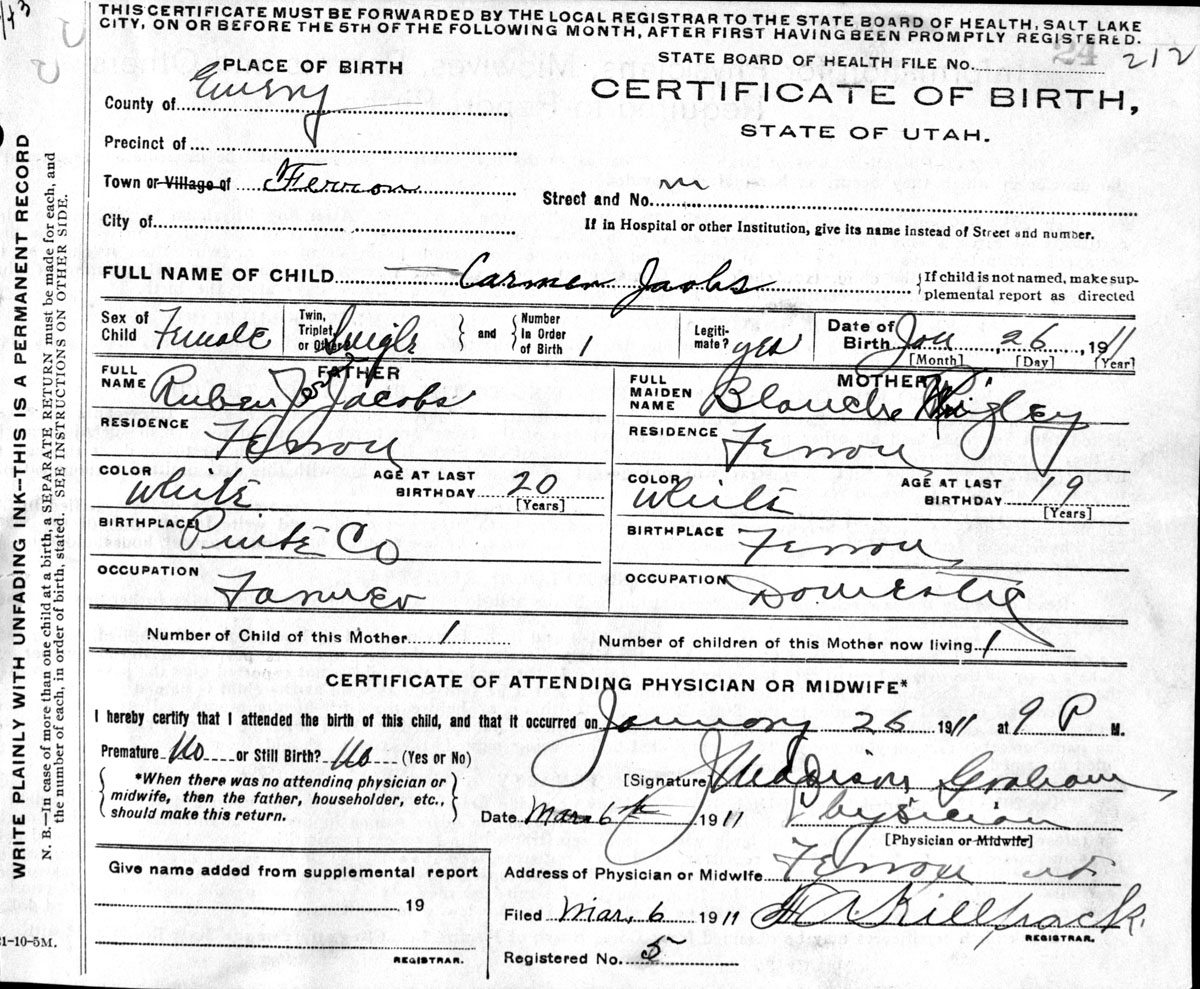 THIS CERTIFICATE MUST BE FORWARDED BY THE LOCAL REGISTRAR TO THE STATE BOARD OF HEALTH, SALT LAKE
CITY, ON OR BEFORE THE 5TH OF THE FOLLOWING MONTH, AFTER FIRST HAVING BEEN PROMPTLY REGISTERED.
STATE BOARD OF HEALTH FILE No. 24 212
PLACE OF BIRTH
CERTIFICATE OF BIRTH,
STATE OF UTAH.
County of Emery
Precinct of
Town or Village of Ferron
Street and No.
City of
If in Hospital or other Institution, give its name instead of Street and number.
FULL NAME OF CHILD Carmen Jacobs
If child is not named, make sup-
plemental report as directed
Sex of Child Female
Twin, Triplet, or Other? Single and Number in Order of Birth 1
Legiti-mate? yes
Date of Birth Jan 26, 1911
[Month] [Day] [Year]
FATHER
FULL NAME Ruben Jacobs
RESIDENCE Ferron
COLOR White
AGE AT LAST BIRTHDAY 20
[Years]
BIRTHPLACE Piute Co
OCCUPATION Farmer
MOTHER
FULL MAIDEN NAME Blanche Wrigley
RESIDENCE Ferron
COLOR White
AGE AT LAST BIRTHDAY 19
[Years]
BIRTHPLACE Ferron
OCCUPATION Domestic
Number of Child of this Mother 1
Number of children of this Mother now living 1
CERTIFICATE OF ATTENDING PHYSICIAN OR MIDWIFE*
I hereby certify that I attended the birth of this child, and that it occurred on January 26 1911 at 9 P M.
Premature No or Still Birth? No (Yes or No)
*When there was no attending physician or
midwife, then the father, householder, etc.,
should make this return.
[Signature] Graham
Date Mar 6th 1911 Physician
[Physician or Midwife]
Address of Physician or Midwife Ferron
Filed Mar. 6 1911 Killpack
REGISTRAR.
Registered No. 5
Give name added from supplemental report
19
REGISTRAR.
21-10-5M.
WRITE PLAINLY WITH UNFADING INK—THIS IS A PERMANENT RECORD
N. B.—In case of more than one child at a birth, a SEPARATE RETURN must be made for each, and
the number of each, in order of birth, stated. SEE INSTRUCTIONS ON OTHER SIDE.